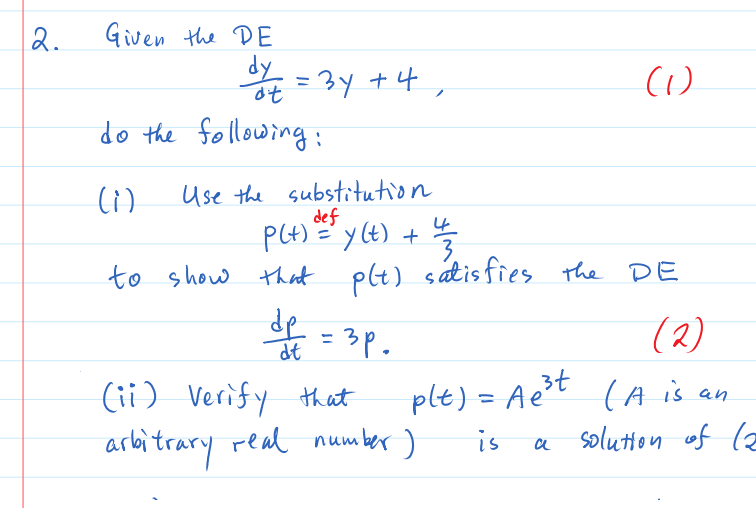 2. Given the DE
dy/dt = 3y + 4, (1)
do the following:
(i) Use the substitution
p(t) =^def y(t) + 4/3
to show that p(t) satisfies the DE
dp/dt = 3p. (2)
(ii) Verify that p(t) = Ae^3t (A is an
arbitrary real number) is a solution of (2